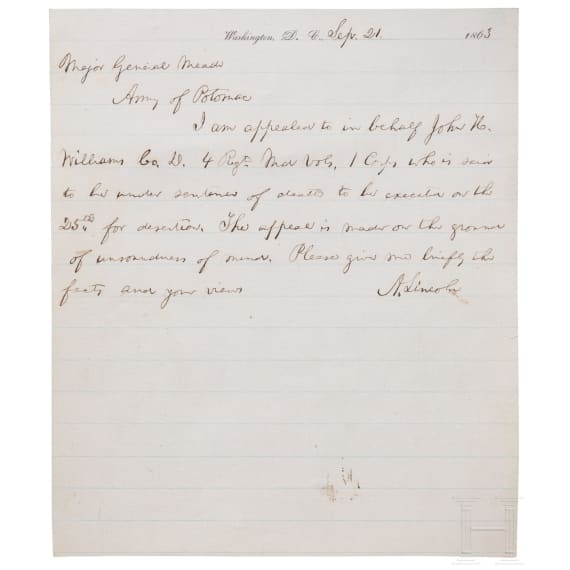 Washington, D. C. Sep. 21. 1863
Major General Meade
Army of Potomac
I am appealed to in behalf John H.
Williams Co. D. 4 Regt. Md Vols. 1 Corps who is said
to be under sentence of death to be executed on the
25th. for desertion. The appeal is made on the ground
of unsoundness of mind. Please give me briefly the
facts and your views
A. Lincoln